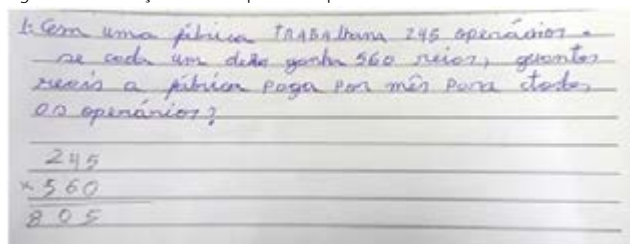 1: Com uma fábrica TRABAlham 245 operários.
se cada um deles ganha 560 reios, quantos
reais a fábrica paga por mês para todos
os operários?
245
× 560
805